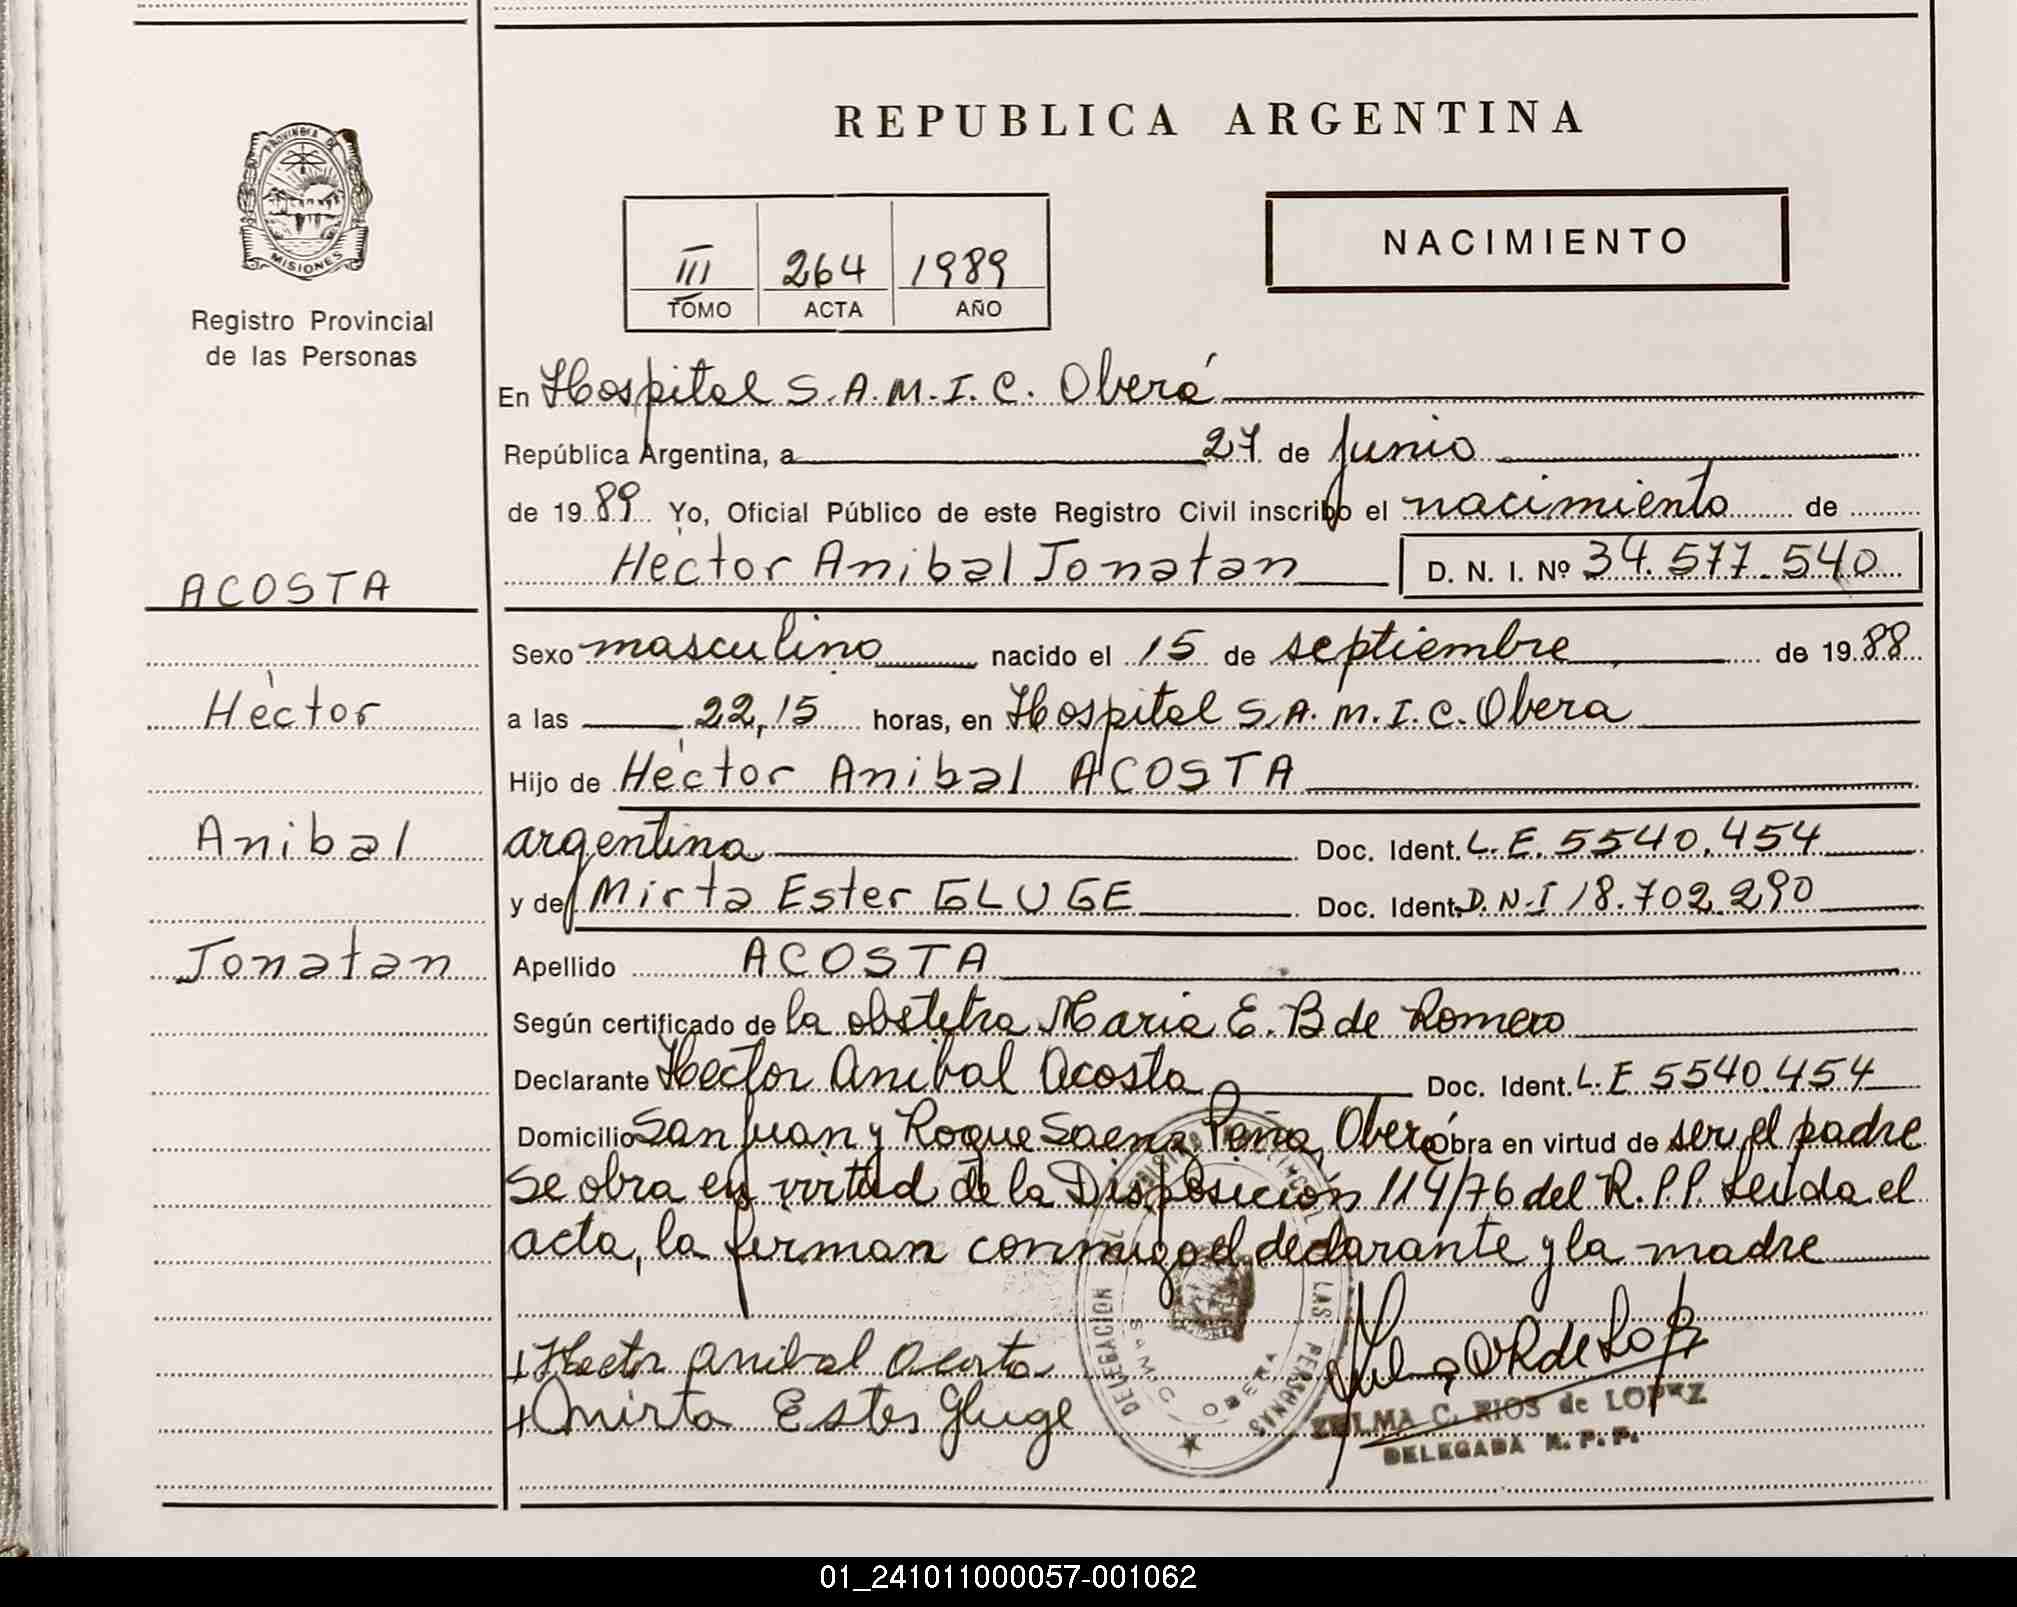 REPUBLICA ARGENTINA
PROVINCIA DE
MISIONES
Registro Provincial
de las Personas
III 264 1989
TOMO ACTA AÑO
NACIMIENTO
En Hospital S.A.M.I.C. Oberá
República Argentina, a 27 de junio
de 1989 Yo, Oficial Público de este Registro Civil inscribo el nacimiento de
Héctor Anibal Jonatan D. N. I. Nº 34.577.540
ACOSTA
Héctor
Anibal
Jonatan
Sexo masculino nacido el 15 de septiembre de 1988
a las 22,15 horas, en Hospital S.A.M.I.C. Obera
Hijo de Héctor Anibal ACOSTA
argentina Doc. Ident. L.E. 5540.454
y de Mirta Ester GLUGE Doc. Ident. D.N.I 18.702.290
Apellido ACOSTA
Según certificado de la obstetra Maria E. B de Romero
Declarante Hector Anibal Acosta Doc. Ident. L.E 5540.454
Domicilio San Juan y Roque Saenz Peña, Oberá obra en virtud de ser el padre
Se obra en virtud de la Disposición 114/76 del R.P.P. Leida el
acta, la firman conmigo el declarante y la madre
Hector Anibal Acosta
Mirta Ester Gluge
DELEGACION
LAS PERSONAS
SAMIC - OBERA
ZULMA C. RIOS de LOPEZ
DELEGADA R. P. P.
01_241011000057-001062